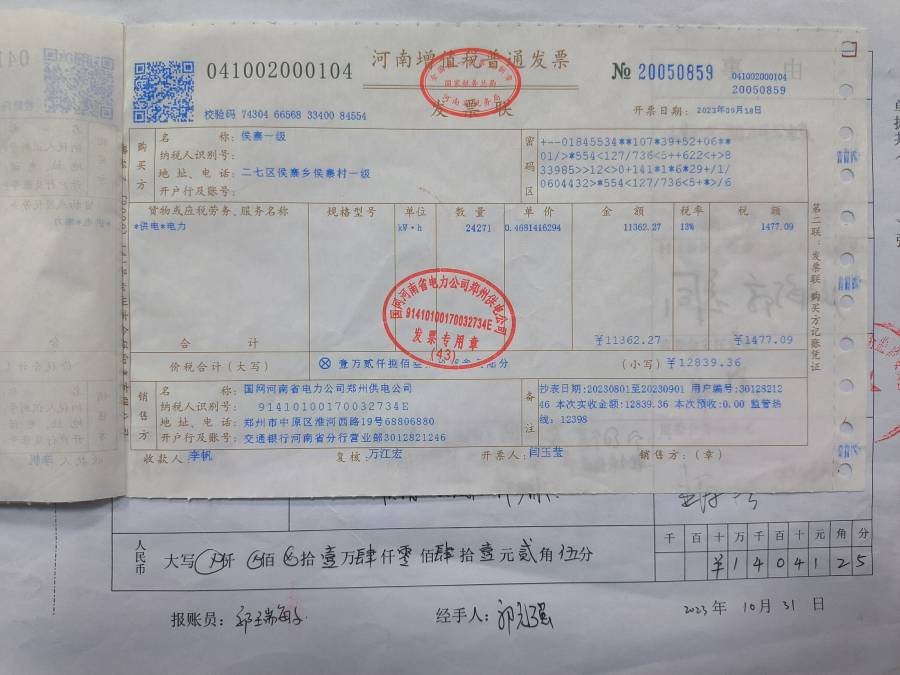 河南增值税普通发票
041002000104
№ 20050859
041002000104
20050859
发票联
校验码 74304 66568 33400 84554
开票日期: 2023年09月18日
购买方
名 称: 侯寨一级
纳税人识别号:
地址、电话: 二七区侯寨乡侯寨村一级
开户行及账号:
密码区
+--01845534**107*39+52+06**
01/>*554<127/736<5++622<+>8
33985>>12<0+141*1*6*29+/1/
0604432>*554<127/736<5+*>/6
货物或应税劳务、服务名称 规格型号 单位 数量 单价 金额 税率 税额
*供电*电力 kW·h 24271 0.4681416294 11362.27 13% 1477.09
合 计 ¥11362.27 ¥1477.09
价税合计(大写) ⊗ 壹万贰仟捌佰 (小写) ¥12839.36
销售方
名 称: 国网河南省电力公司郑州供电公司
纳税人识别号: 91410100170032734E
地址、电话: 郑州市中原区淮河西路19号68806880
开户行及账号: 交通银行河南省分行营业部3012821246
备注
抄表日期:20230801至20230901 用户编号:30128212
46 本次实收金额:12839.36 本次预收:0.00 监管热
线: 12398
收款人: 李帆 复核: 万江宏 开票人: 闫玉莹 销售方:(章)
第二联:发票联 购买方记账凭证
国网河南省电力公司郑州供电公司
91410100170032734E
发票专用章
(43)
国家税务总局
河南省税务局
*供电*电力
收款人 李帆
人民币
大写 仟 佰 拾 壹万肆仟零佰肆拾壹元贰角伍分
千 百 十 万 千 百 十 元 角 分
¥ 1 4 0 4 1 2 5
报账员:
经手人:
2023 年 10 月 31 日